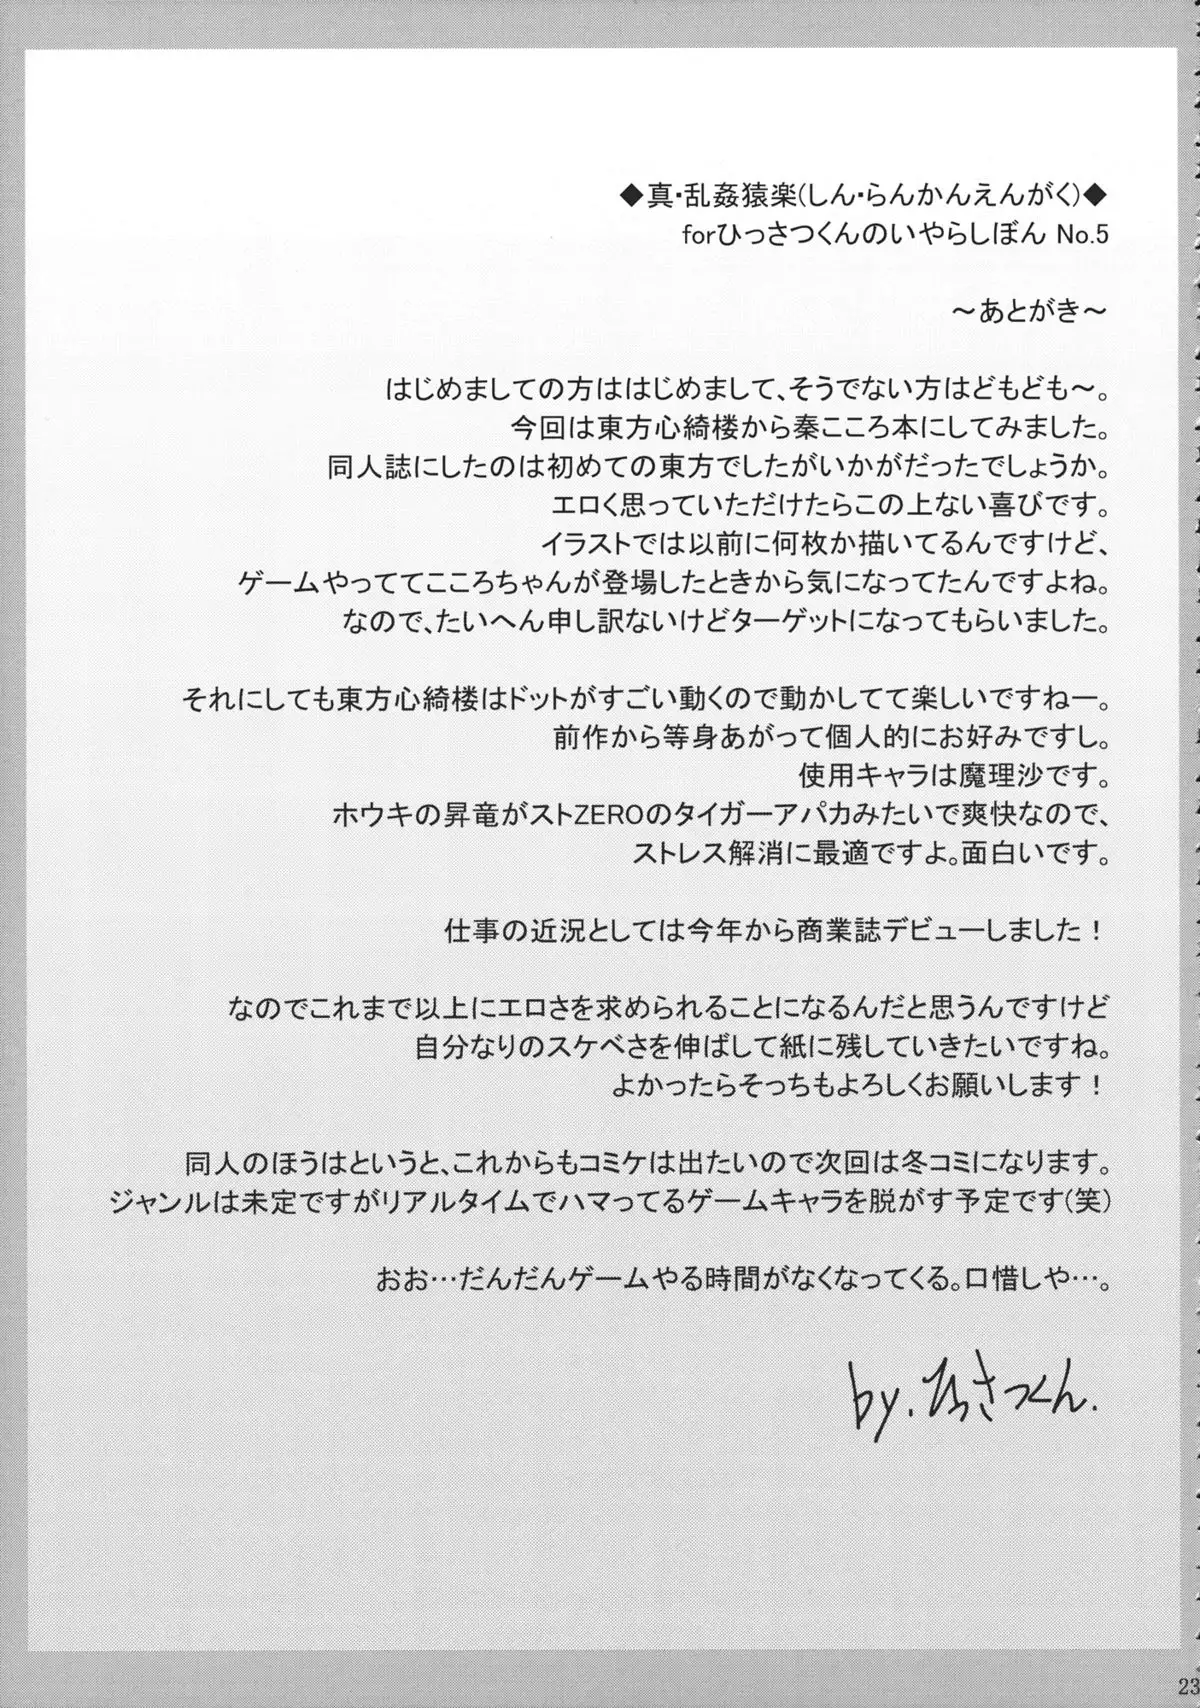 ◆真・乱姦猿楽(しん・らんかんえんがく)◆
forひっさつくんのいやらしぼん No.5
～あとがき～
はじめましての方ははじめまして、そうでない方はどもども～。
今回は東方心綺楼から秦こころ本にしてみました。
同人誌にしたのは初めての東方でしたがいかがだったでしょうか。
エロく思っていただけたらこの上ない喜びです。
イラストでは以前に何枚か描いてるんですけど、
ゲームやっててこころちゃんが登場したときから気になってたんですよね。
なので、たいへん申し訳ないけどターゲットになってもらいました。
それにしても東方心綺楼はドットがすごい動くので動かしてて楽しいですねー。
前作から等身あがって個人的にお好みですし。
使用キャラは魔理沙です。
ホウキの昇竜がストZEROのタイガーアパカみたいで爽快なので、
ストレス解消に最適ですよ。面白いです。
仕事の近況としては今年から商業誌デビューしました！
なのでこれまで以上にエロさを求められることになるんだと思うんですけど
自分なりのスケベさを伸ばして紙に残していきたいですね。
よかったらそっちもよろしくお願いします！
同人のほうはというと、これからもコミケは出たいので次回は冬コミになります。
ジャンルは未定ですがリアルタイムでハマってるゲームキャラを脱がす予定です(笑)
おお…だんだんゲームやる時間がなくなってくる。口惜しや…。
by.ひっさつくん.
23